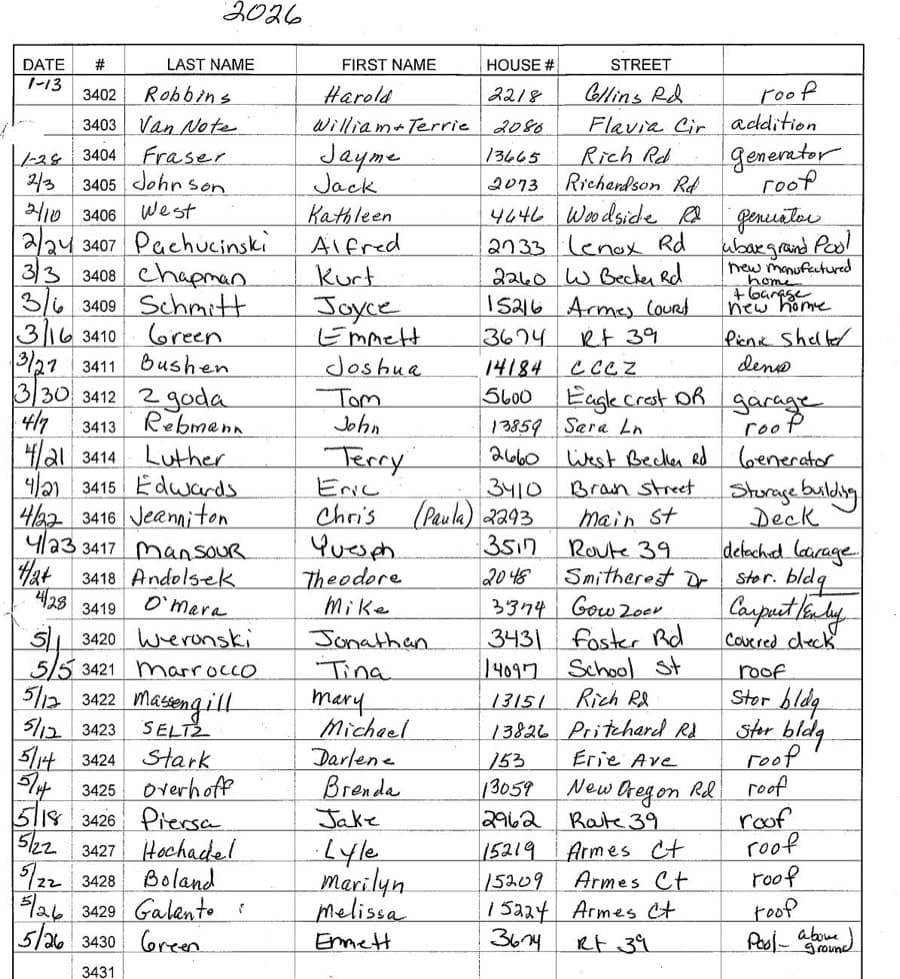 2026
DATE # LAST NAME FIRST NAME HOUSE # STREET
1-13 3402 Robbins Harold 2218 Collins Rd roof
3403 Van Note William + Terrie 2086 Flavia Cir addition
1-28 3404 Fraser Jayme 13665 Rich Rd generator
2/3 3405 Johnson Jack 2073 Richardson Rd roof
2/10 3406 West Kathleen 4646 Woodside Rd generator
2/24 3407 Pachucinski Alfred 2733 Lenox Rd above ground Pool
3/3 3408 Chapman Kurt 2260 W Becker Rd new manufactured home
3/6 3409 Schmitt Joyce 15216 Armes Court + Garage new home
3/16 3410 Green Emmett 3674 Rt 39 Picnic Shelter
3/27 3411 Bushen Joshua 14184 demo
3/30 3412 Zgoda Tom 5600 Eagle crest DR garage
4/7 3413 Rebmann John 13859 Sara Ln roof
4/21 3414 Luther Terry 2660 West Becker Rd Generator
4/21 3415 Edwards Eric 3410 Bran Street Storage building
4/22 3416 Jeanniton Chris (Paula) 2293 Main St Deck
4/23 3417 Mansour Yuesph 3517 Route 39 detached Garage
3418 Andolsek Theodore 2048 Smitherest Dr stor. bldg
4/28 3419 O'Mara Mike 3374 Carport/Entry
5/1 3420 Weronski Jonathan 3431 Foster Rd Covered deck
5/5 3421 Marrocco Tina 14097 School St roof
5/12 3422 Massengill Mary 13151 Rich Rd Stor bldg
5/12 3423 SELTZ Michael 13826 Pritchard Rd Stor bldg
5/14 3424 Stark Darlene 153 Erie Ave roof
5/14 3425 Overhoff Brenda 13059 New Oregon Rd roof
5/18 3426 Piersa Jake 2962 Route 39 roof
5/22 3427 Hochadel Lyle 15219 Armes Ct roof
5/22 3428 Boland Marilyn 15209 Armes Ct roof
5/26 3429 Galanto Melissa 15224 Armes Ct roof
5/26 3430 Green Emett 3674 Rt 39 Pool - above ground
3431